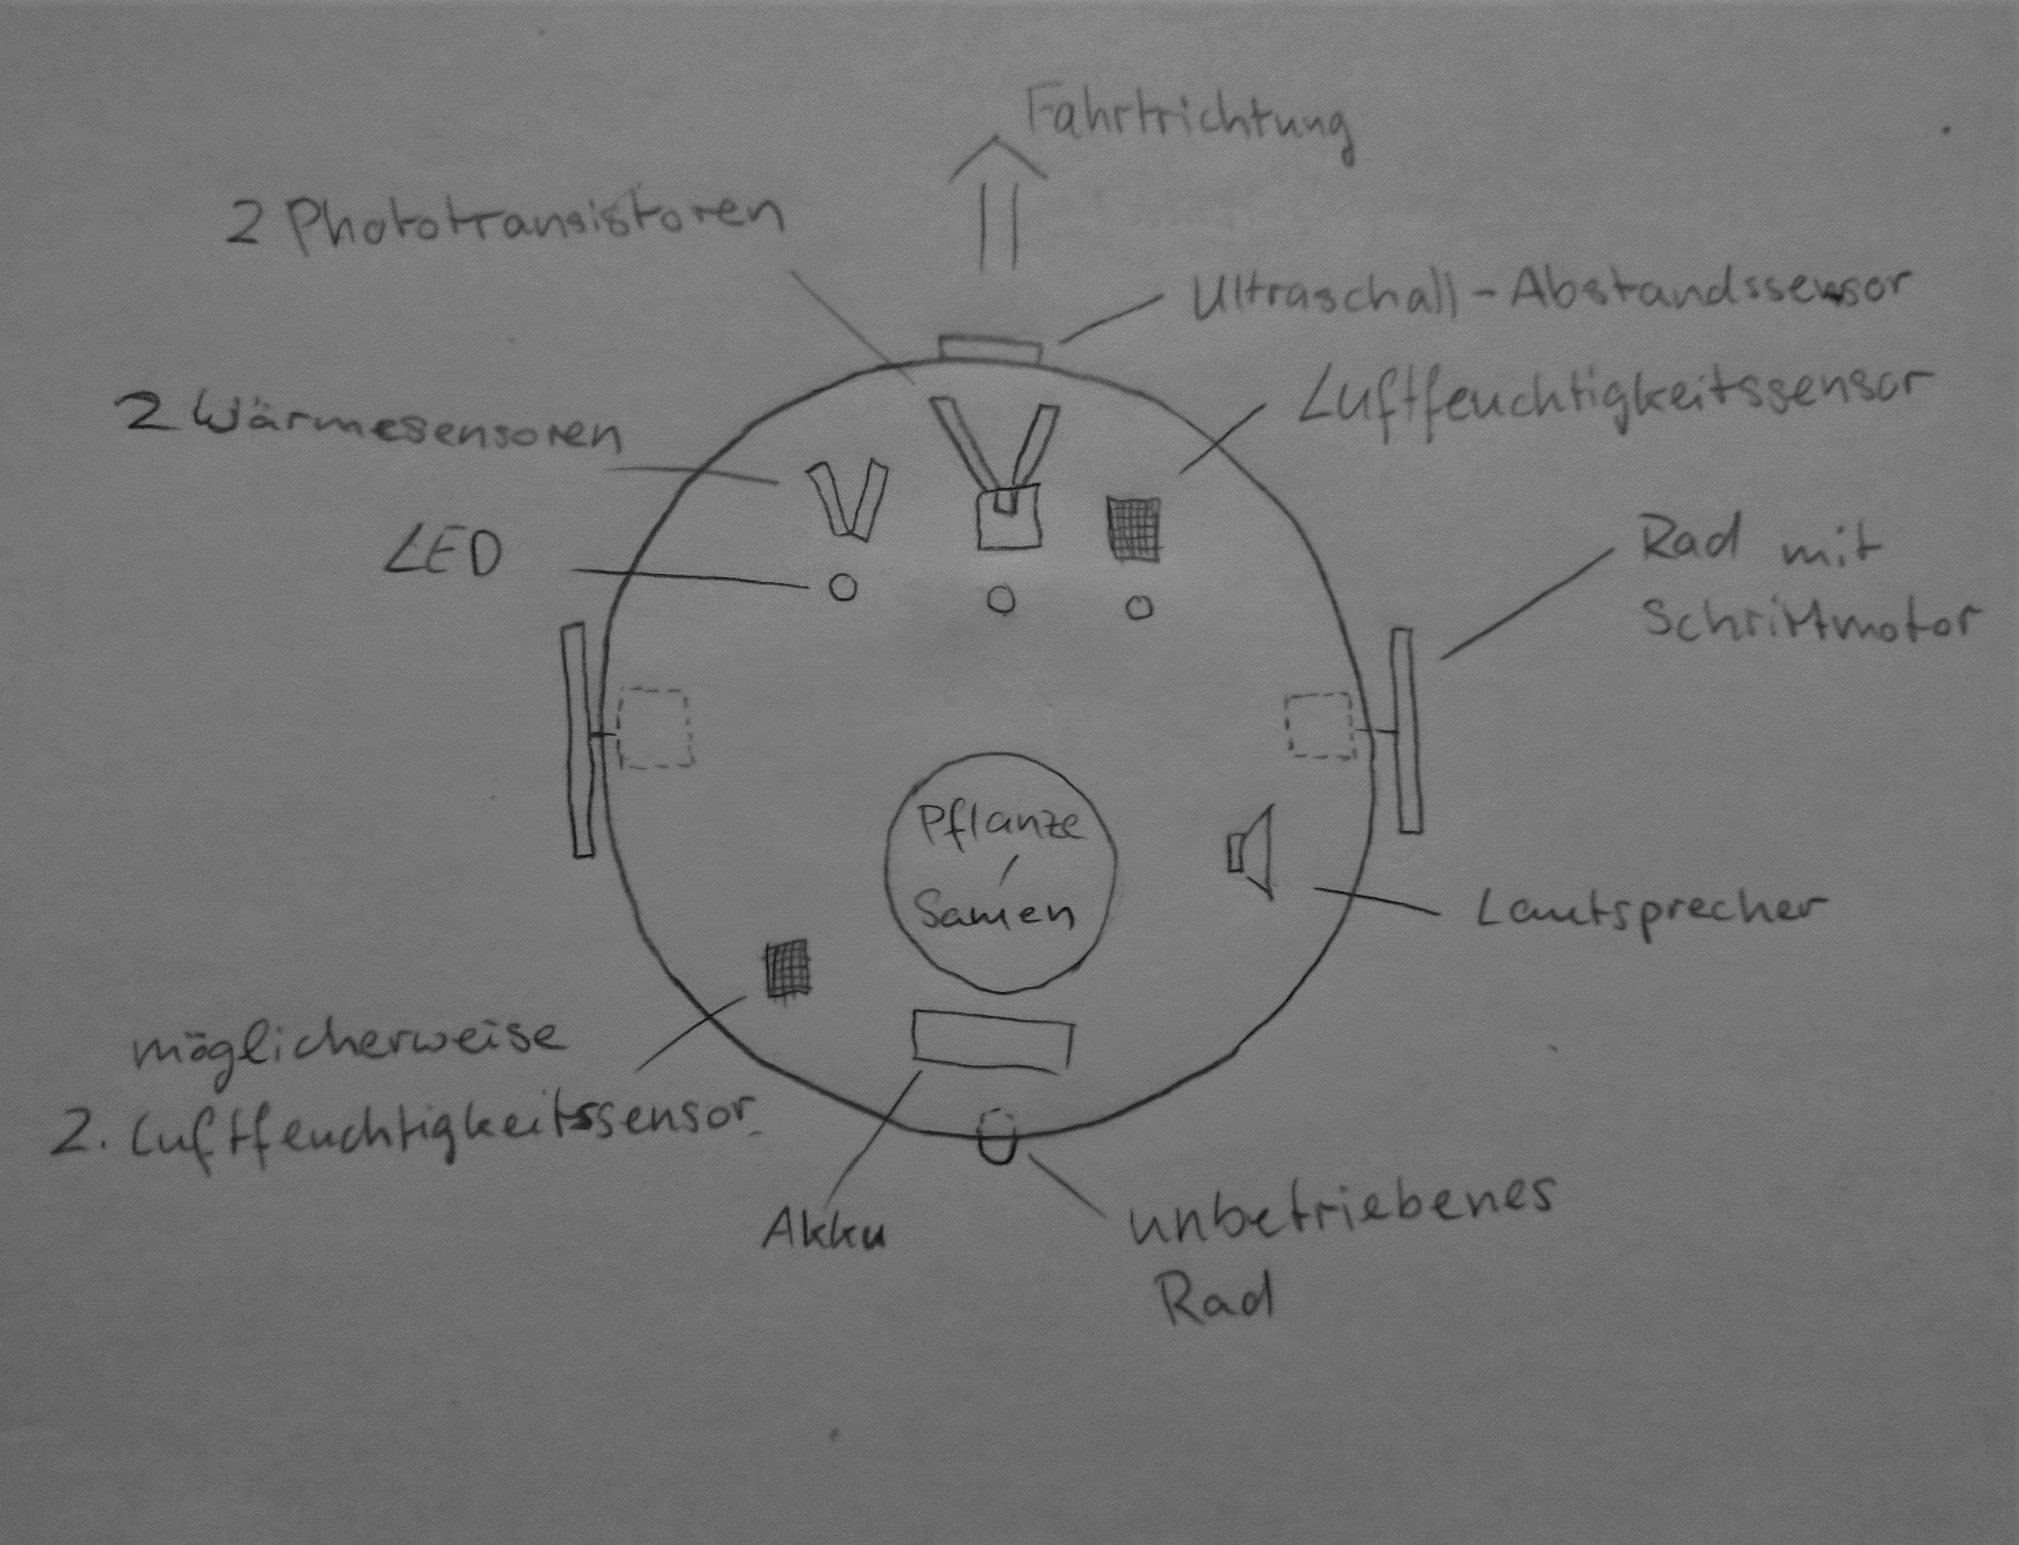 Fahrtrichtung
2 Phototransistoren
Ultraschall-Abstandssensor
2 Wärmesensoren
Luftfeuchtigkeitssensor
LED
Rad mit
Schrittmotor
Pflanze
/
Samen
Lautsprecher
möglicherweise
2. Luftfeuchtigkeitssensor
Akku
unbetriebenes
Rad